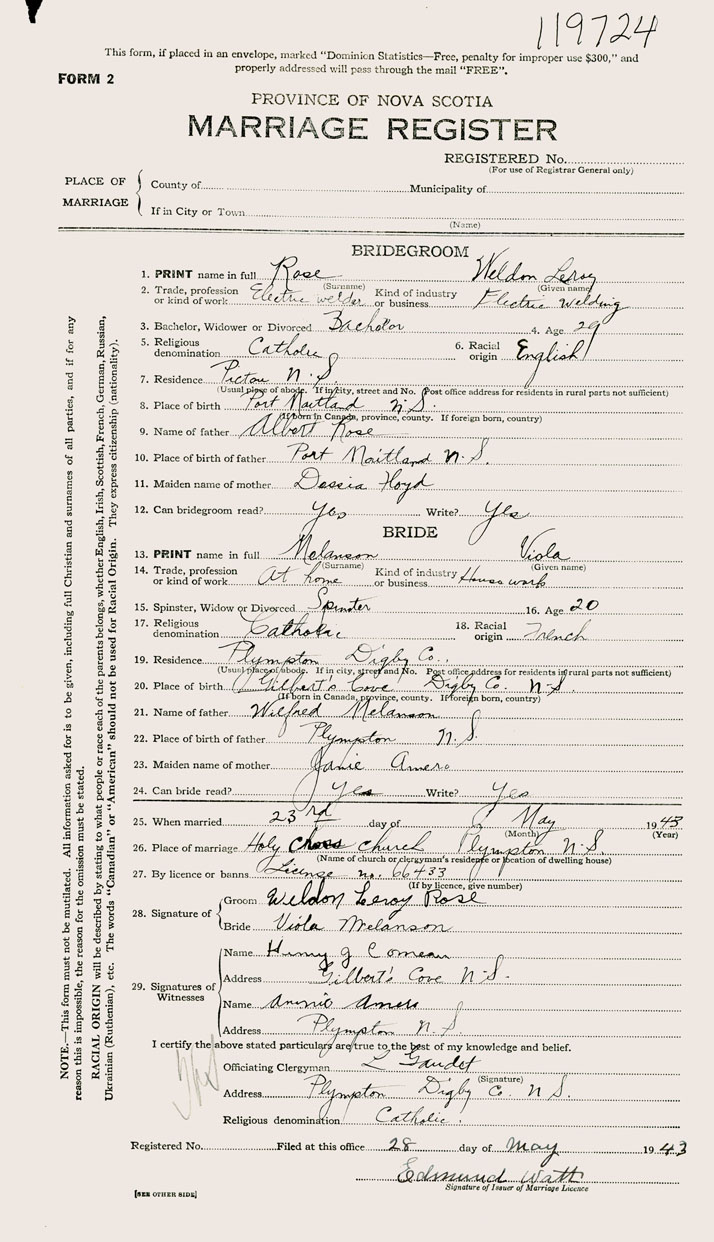 119724
This form, if placed in an envelope, marked "Dominion Statistics—Free, penalty for improper use $300," and
properly addressed will pass through the mail "FREE".
FORM 2
PROVINCE OF NOVA SCOTIA
MARRIAGE REGISTER
REGISTERED No.
(For use of Registrar General only)
PLACE OF MARRIAGE
County of Municipality of
If in City or Town
(Name)
BRIDEGROOM
1. PRINT name in full Rose Weldon Leroy
(Surname) (Given name)
2. Trade, profession or kind of work Electric welder Kind of industry or business Electric Welding
3. Bachelor, Widower or Divorced Bachelor 4. Age 29
5. Religious denomination Catholic 6. Racial origin English
7. Residence Pictou N.S.
(Usual place of abode. If in city, street and No. Post office address for residents in rural parts not sufficient)
8. Place of birth Port Maitland N.S.
(If born in Canada, province, county. If foreign born, country)
9. Name of father Albert Rose
10. Place of birth of father Port Maitland N.S.
11. Maiden name of mother Dessia Floyd
12. Can bridegroom read? Yes Write? Yes
BRIDE
13. PRINT name in full Melanson Viola
(Surname) (Given name)
14. Trade, profession or kind of work At home Kind of industry or business House work
15. Spinster, Widow or Divorced Spinster 16. Age 20
17. Religious denomination Catholic 18. Racial origin French
19. Residence Plympton Digby Co.
(Usual place of abode. If in city, street and No. Post office address for residents in rural parts not sufficient)
20. Place of birth Gilbert's Cove Digby Co. N.S.
(If born in Canada, province, county. If foreign born, country)
21. Name of father Wilfred Melanson
22. Place of birth of father Plympton N.S.
23. Maiden name of mother Janie Amero
24. Can bride read? Yes Write? Yes
25. When married 23rd day of May 1943
(Month) (Year)
26. Place of marriage Holy Cross Church Plympton N.S.
(Name of church or clergyman's residence or location of dwelling house)
27. By licence or banns License no. 66433
(If by licence, give number)
28. Signature of
Groom Weldon Leroy Rose
Bride Viola Melanson
29. Signatures of Witnesses
Name Henry J Comeau
Address Gilbert's Cove N.S.
Name Annie Amero
Address Plympton N.S.
I certify the above stated particulars are true to the best of my knowledge and belief.
Officiating Clergyman L Gaudet
(Signature)
Address Plympton Digby Co. N.S.
Religious denomination Catholic.
Registered No. Filed at this office 28 day of May 1943
Edmund Watt
Signature of Issuer of Marriage Licence
[SEE OTHER SIDE]
NOTE.—This form must not be mutilated. All information asked for is to be given, including full Christian and surnames of all parties, and if for any
reason this is impossible, the reason for the omission must be stated.
RACIAL ORIGIN will be described by stating to what people or race each of the parents belongs, whether English, Irish, Scottish, French, German, Russian,
Ukrainian (Ruthenian), etc. The words "Canadian" or "American" should not be used for Racial Origin. They express citizenship (nationality).